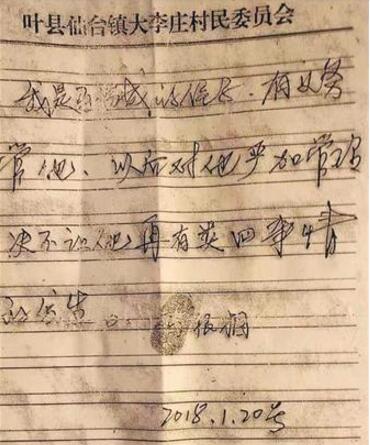 叶县仙台镇大李庄村民委员会
我是 的侄长.有义务
管他、以后对他严加管理
决不让他再有类四事情
的发生。
2018.1.20号